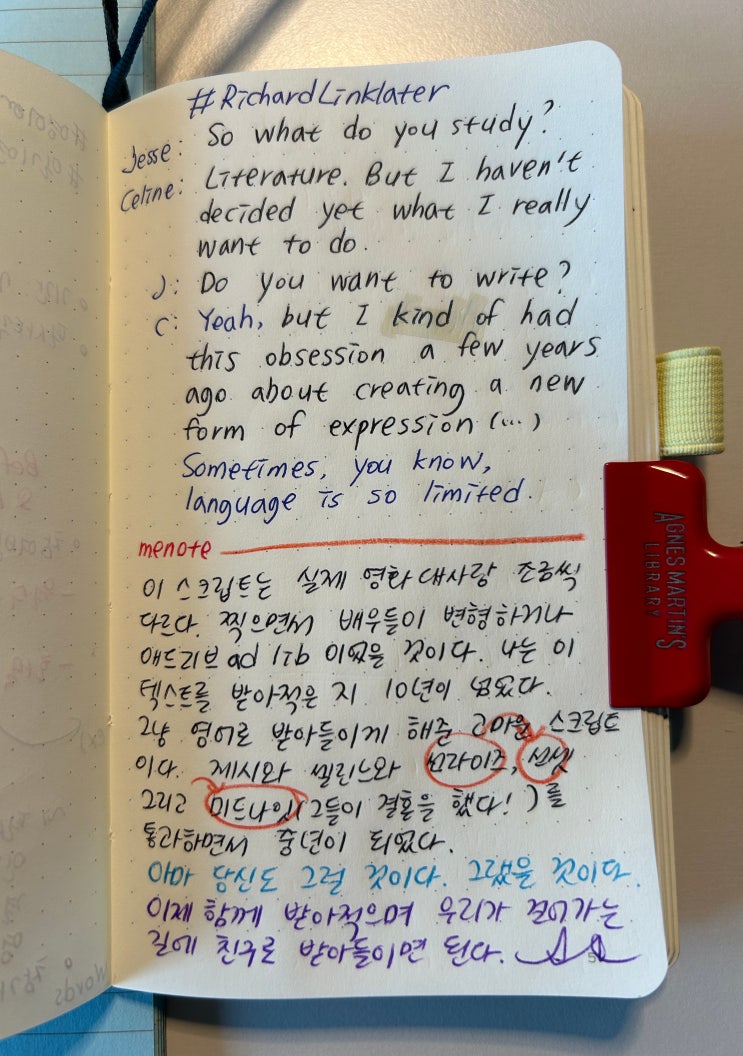 #RichardLinklater
Jesse: So what do you study?
Celine: Literature. But I haven't
decided yet what I really
want to do.
J: Do you want to write?
C: Yeah, but I kind of had
this obsession a few years
ago about creating a new
form of expression (...)
Sometimes, you know,
language is so limited.
menote
이 스크립트는 실제 영화 대사랑 조금씩
다르다. 찍으면서 배우들이 변형하거나
애드리브 ad lib 이었을 것이다. 나는 이
텍스트를 받아적은 지 10년이 넘었다.
그냥 영어로 받아들이게 해준 고마운 스크립트
이다. 제시와 셀린느와 선라이즈, 선셋
그리고 미드나잇(그들이 결혼을 했다!)를
통과하면서 중년이 되었다.
아마 당신도 그럴 것이다. 그랬을 것이다.
이제 함께 받아적으며 우리가 걸어가는
길에 친구로 받아들이면 된다.
AGNES MARTIN'S
LIBRARY